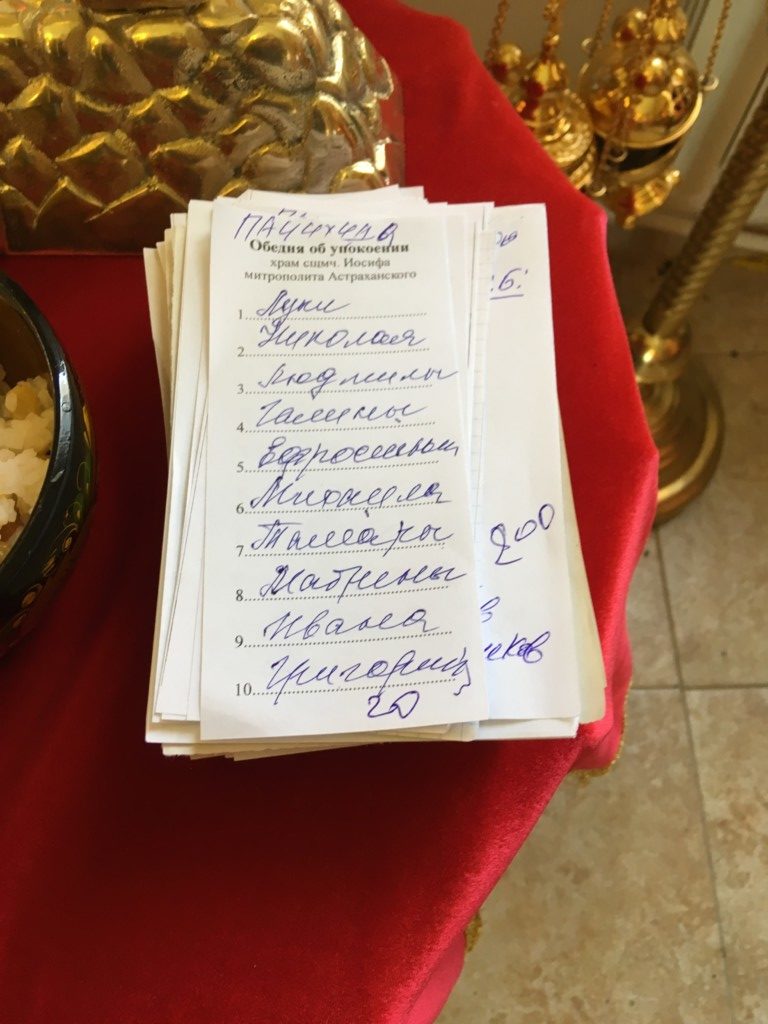 Панихида
Обедня об упокоении
храм сщмч. Иосифа
митрополита Астраханского
1. Луки
2. Николая
3. Людмилы
4. Галины
5. Ефросиньи
6. Михаила
7. Тамары
8. Матрены
9. Ивана
10. Григория
20
200